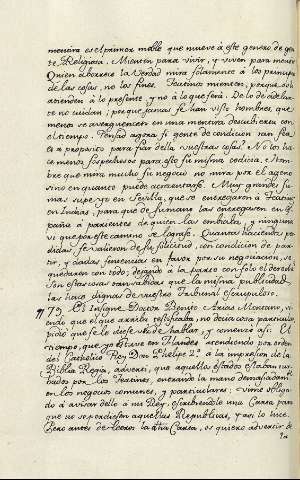 mentira es el primer moble que mueve à este genero de gen
te Religiosa. Mienten para vivir, y viven para mentir
Quien aborrece la verdad mira solamente à los principios
de las cosas, no los fines. Teatinos mienten, porque solo
atienden à lo presente y no à lo que será. De lo de adelan
te no cuidan; porque jamas se han visto hombres, que
menos se avergüencen en una mentira descubierta con
el tiempo. Pensad agora si gente de condicion tan fea
es à proposito para fiar della vuestras cosas? No los ha
ce menos sospechosos para esto su misma codicia. Hom
bre que mira mucho su negocio no mira por el ageno
sino en quanto puede acrecentarse. Muy grandes su
mas supe yo en Sevilla, que se entregaron à Teatinos
en Indias, para que de su mano las entregasen en Es
paña à parientes de quien las embiaba, y ninguna
vi que por este camino se lograse. Quantas haciendas per
didas se valieron de su solicitud, con condicion de par
tir, y dadas sentencias en favor por su negociacion, se
quedaron con todo; dejando à la parte con solo el derecho
Son estas cosas tan sabidas que la misma publicidad
las hace dignas de nuestro Tribunal escrupuloso.
75. El Insigne Doctor Benito Arias Montano, vi
endo que el que arriba refirio no decia otra
pidio que se le diese de hablar, y comenzó asi. El
tiempo, que yo estuve en Flandes atendiendo por orden
del Catolico Rey Don Phelipe 2º à la impresion de la
Biblia Regia, adverti, que aquellos estados estaban tur
bados por los Teatinos, entrando la mano demasiadamente
en los negocios comunes, y particulares: vime obliga
do à avisar dello à mi Rey, escribiendole una Carta para
que se expidiesen aquellas Republicas, y asi lo hice.
Pero antes de leeros la dicha Carta, os quiero advertir de